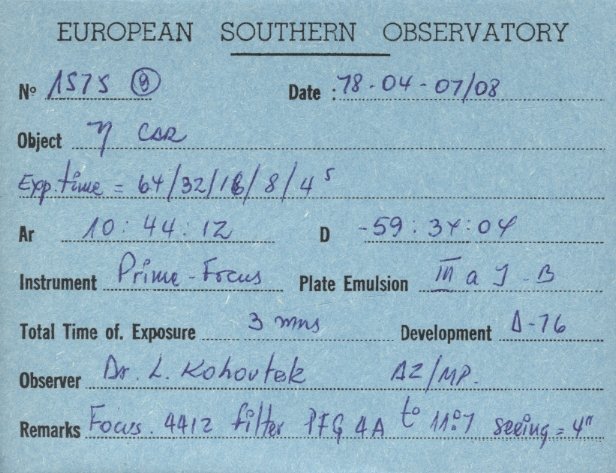 EUROPEAN SOUTHERN OBSERVATORY
Nº 1575 (9) Date : 78-04-07/08
Object η CAR
Exp. time = 64/32/16/8/4 s
Ar 10:44:12 D -59:34:04
Instrument Prime-Focus Plate Emulsion III a J - B
Total Time of. Exposure 3 mns Development Δ-76
Observer Dr. L. Kohoutek AZ/MP.
Remarks Focus. 4412 filter t° 11°.7 seeing = 4"